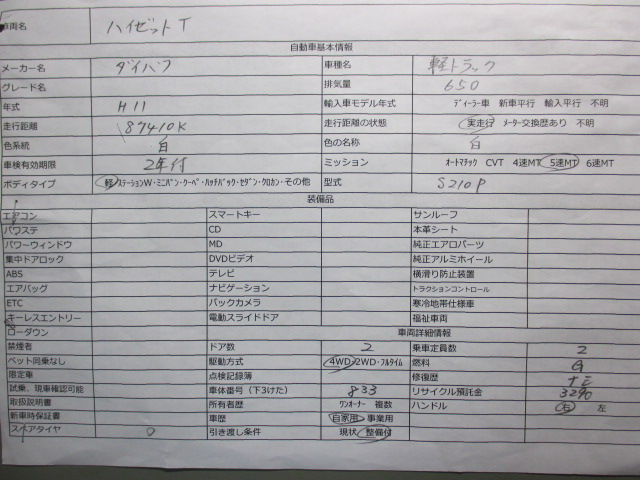 車両名 ハイゼットT
自動車基本情報
メーカー名 ダイハツ 車種名 軽トラック
グレード名 排気量 650
年式 H11 輸入車モデル年式 ディーラー車 新車平行 輸入平行 不明
走行距離 87410K 走行距離の状態 実走行 メーター交換歴あり 不明
色系統 白 色の名称 白
車検有効期限 2年付 ミッション オートマチック CVT 4速MT 5速MT 6速MT
ボディタイプ 軽・ステーションW・ミニバン・クーペ・ハッチバック・セダン・クロカン・その他 型式 S210P
装備品
エアコン スマートキー サンルーフ
パワステ CD 本革シート
パワーウィンドウ MD 純正エアロパーツ
集中ドアロック DVDビデオ 純正アルミホイール
ABS テレビ 横滑り防止装置
エアバッグ ナビゲーション トラクションコントロール
ETC バックカメラ 寒冷地帯仕様車
キーレスエントリー 電動スライドドア 福祉車両
ローダウン 車両詳細情報
禁煙者 ドア数 2 乗車定員数 2
ペット同乗なし 駆動方式 4WD・2WD・フルタイム 燃料 G
限定車 点検記録簿 修復歴 ナシ
試乗、現車確認可能 車体番号(下3けた) 833 リサイクル預託金 3290
取扱説明書 所有者歴 ワンオーナー 複数 ハンドル 右 左
新車時保証書 車歴 自家用 事業用
スペアタイヤ 0 引き渡し条件 現状 整備付